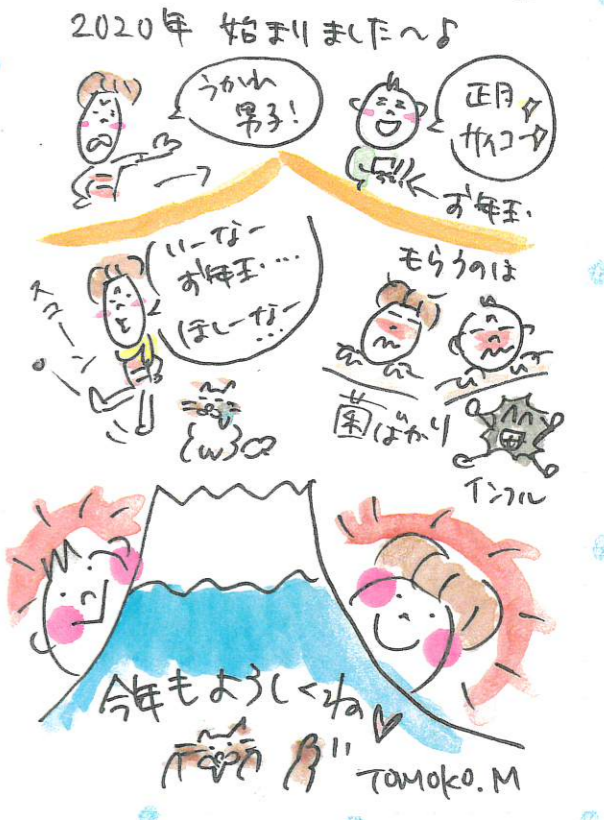 2020年 始まりました〜♪
うかれ
男子!
正月
サイコー
お年玉.
いーなー
お年玉....
ほしーなー
...
スコーン
もらうのは
菌ばかり
インフル
今年もよろしくね♡
TOMOKO.M